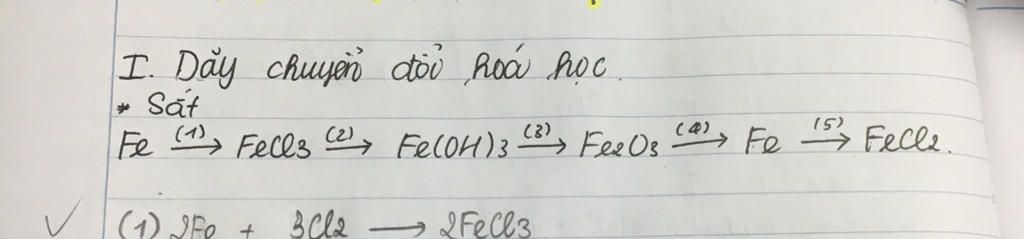 I. Dãy chuyển đổi hoá học.
* Sắt
Fe (1)→ FeCl3 (2)→ Fe(OH)3 (3)→ Fe2O3 (4)→ Fe (5)→ FeCl2.
(1) 2Fe + 3Cl2 → 2FeCl3